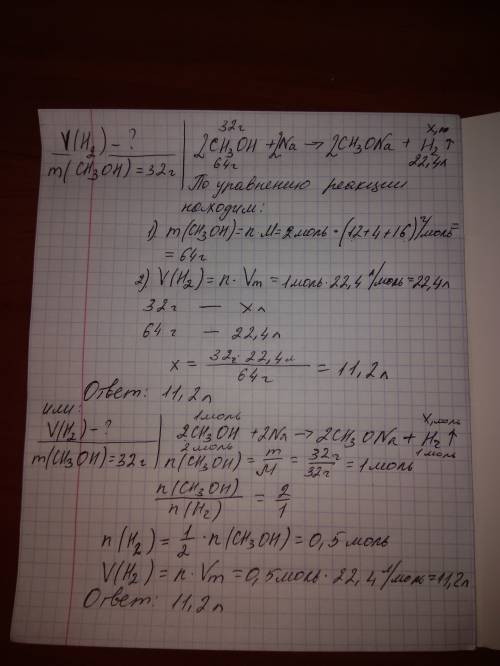 32г x, л
V(H₂) - ? 2CH₃OH + 2Na → 2CH₃ONa + H₂↑
m(CH₃OH) = 32г 64г 22,4л
По уравнению реакции
находим:
1) m(CH₃OH) = n·M = 2моль · (12+4+16) г/моль =
= 64г
2) V(H₂) = n · Vm = 1моль · 22,4 л/моль = 22,4л
32г — xл
64г — 22,4л
x = 32г · 22,4л / 64г = 11,2л
Ответ: 11,2л
или:
1моль x, моль
V(H₂) - ? 2CH₃OH + 2Na → 2CH₃ONa + H₂↑
2моль 1моль
m(CH₃OH) = 32г n(CH₃OH) = m/M = 32г/32г = 1моль
n(CH₃OH)/n(H₂) = 2/1
n(H₂) = 1/2 · n(CH₃OH) = 0,5моль
V(H₂) = n · Vm = 0,5моль · 22,4 л/моль = 11,2л
Ответ: 11,2л